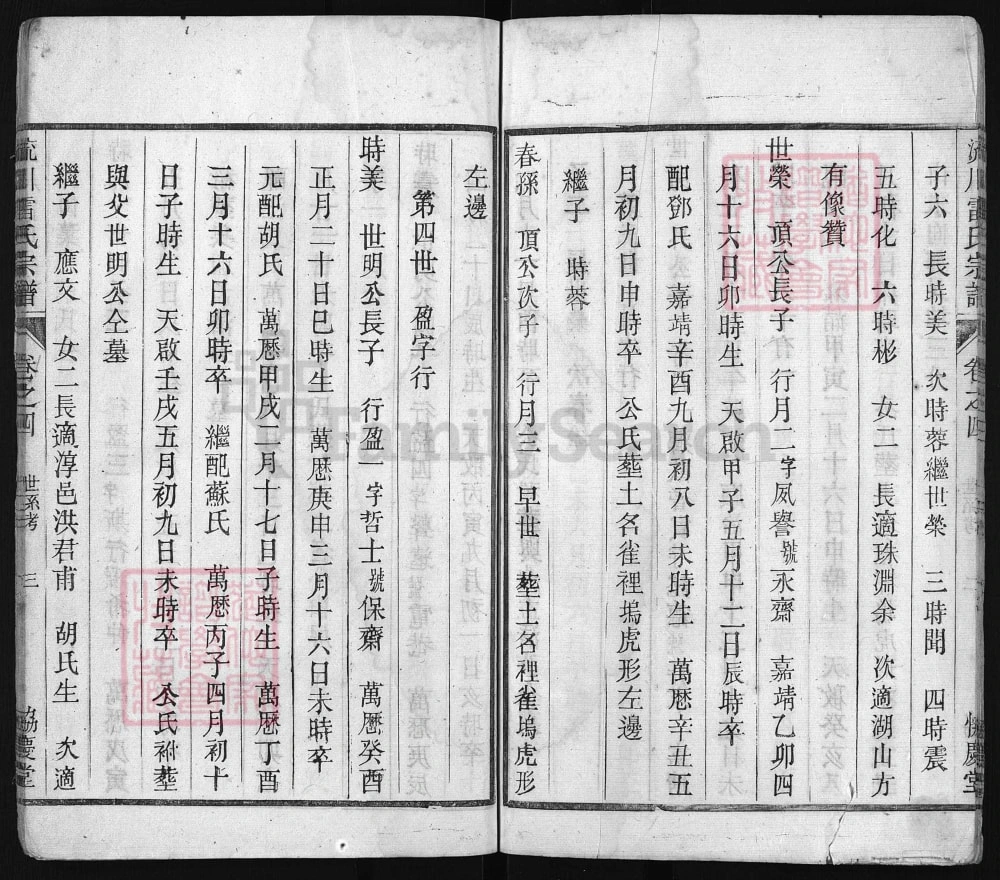 子六 長時美 次時蓉繼世榮 三時聞 四時震
五時化 六時彬 女二 長適珠淵余 次適湖山方
有像贊
世榮 頂公長子 行月二 字夙譽 號永齋 嘉靖乙卯四
月十六日卯時生 天啟甲子五月十二日辰時卒
配鄧氏 嘉靖辛酉九月初八日未時生 萬厯辛丑五
月初九日申時卒 公氏塟土名雀裡塢虎形左邊
繼子 時蓉
春孫 頂公次子 行月三 早世 塟土名裡雀塢虎形
左邊
第四世 盈字行
時美 世明公長子 行盈一 字哲士 號保齋 萬厯癸酉
正月二十日巳時生 萬厯庚申三月十六日未時卒
元配胡氏 萬厯甲戌二月十七日子時生 萬厯丁酉
三月十六日卯時卒 繼配蘇氏 萬厯丙子四月初十
日子時生 天啟壬戌五月初九日未時卒 公氏祔塟
與父世明公仝墓
繼子 應文 女二 長適淳邑洪君甫 胡氏生 次適
流川雷氏宗譜 卷之四 世系考 三 協慶堂
FamilySearch